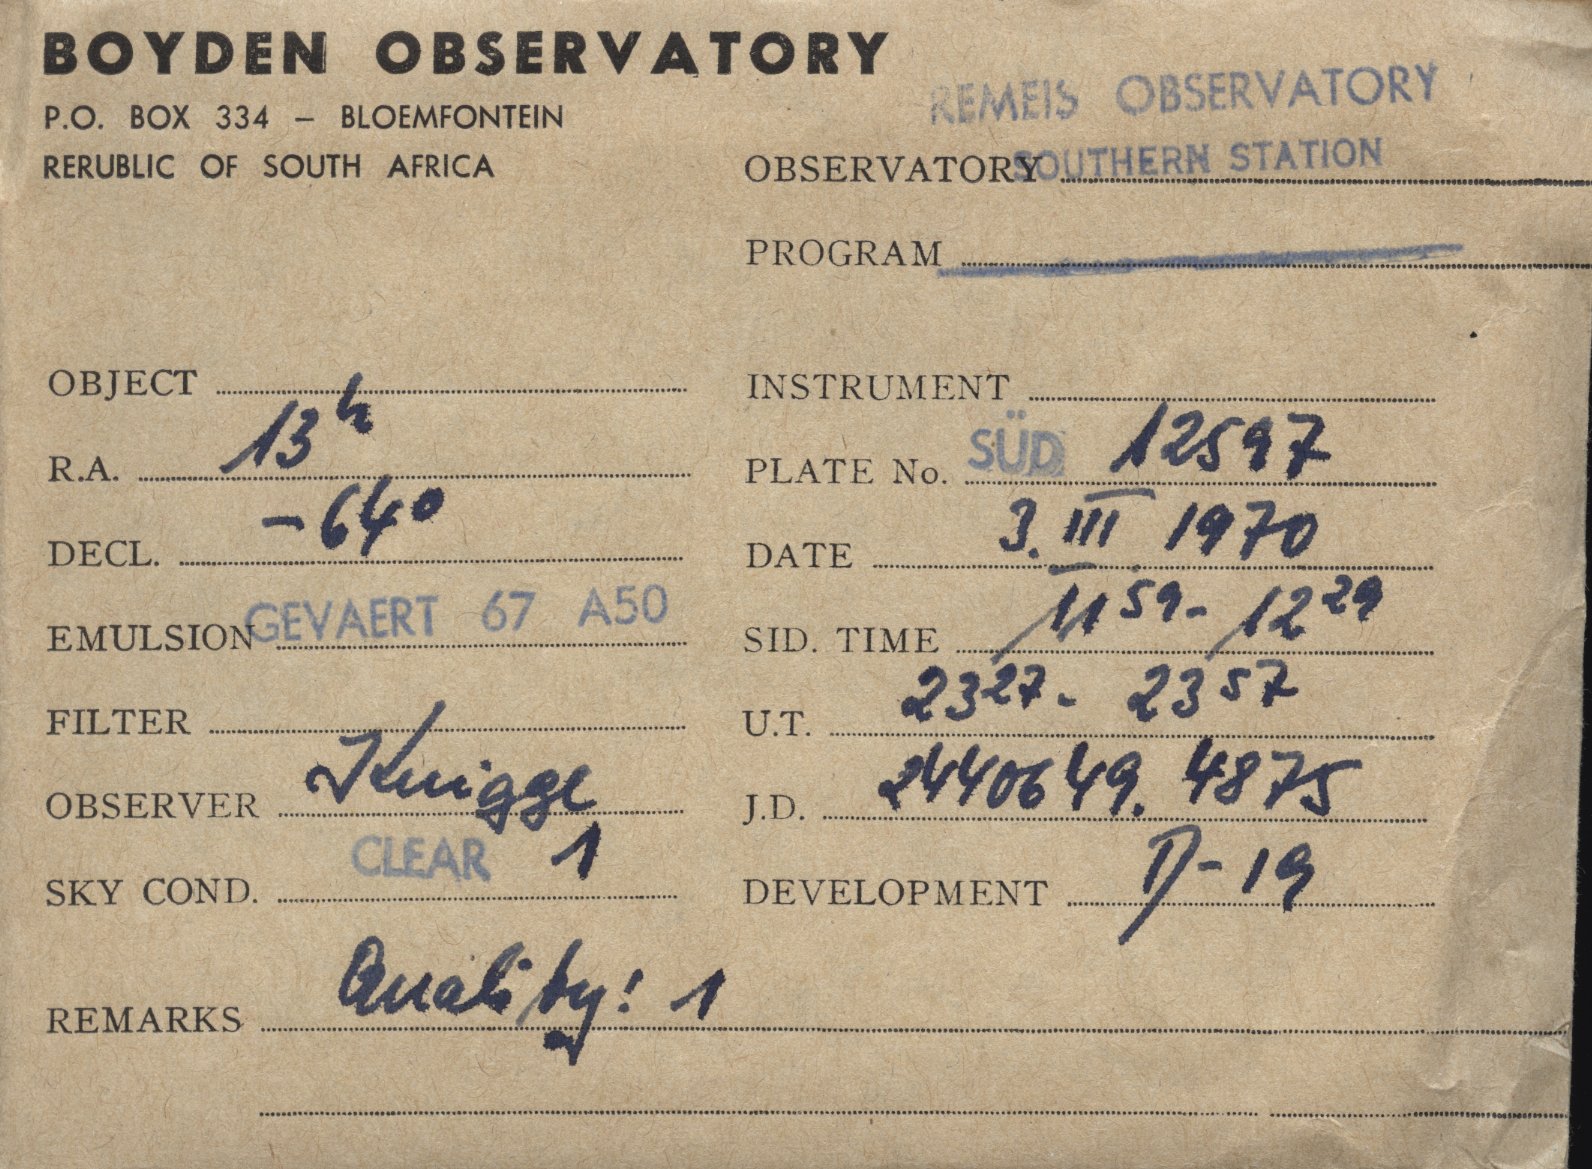 BOYDEN OBSERVATORY
P.O. BOX 334 – BLOEMFONTEIN
RERUBLIC OF SOUTH AFRICA
REMEIS OBSERVATORY
OBSERVATORY SOUTHERN STATION
PROGRAM
OBJECT
INSTRUMENT
R.A. 13h
PLATE No. SÜD 12597
DECL. -64°
DATE 3. III 1970
EMULSION GEVAERT 67 A50
SID. TIME 11 59 - 12 29
FILTER
U.T. 23 27 - 23 57
OBSERVER Knigge
J.D. 2440649.4875
SKY COND. CLEAR 1
DEVELOPMENT D-19
REMARKS Quality: 1